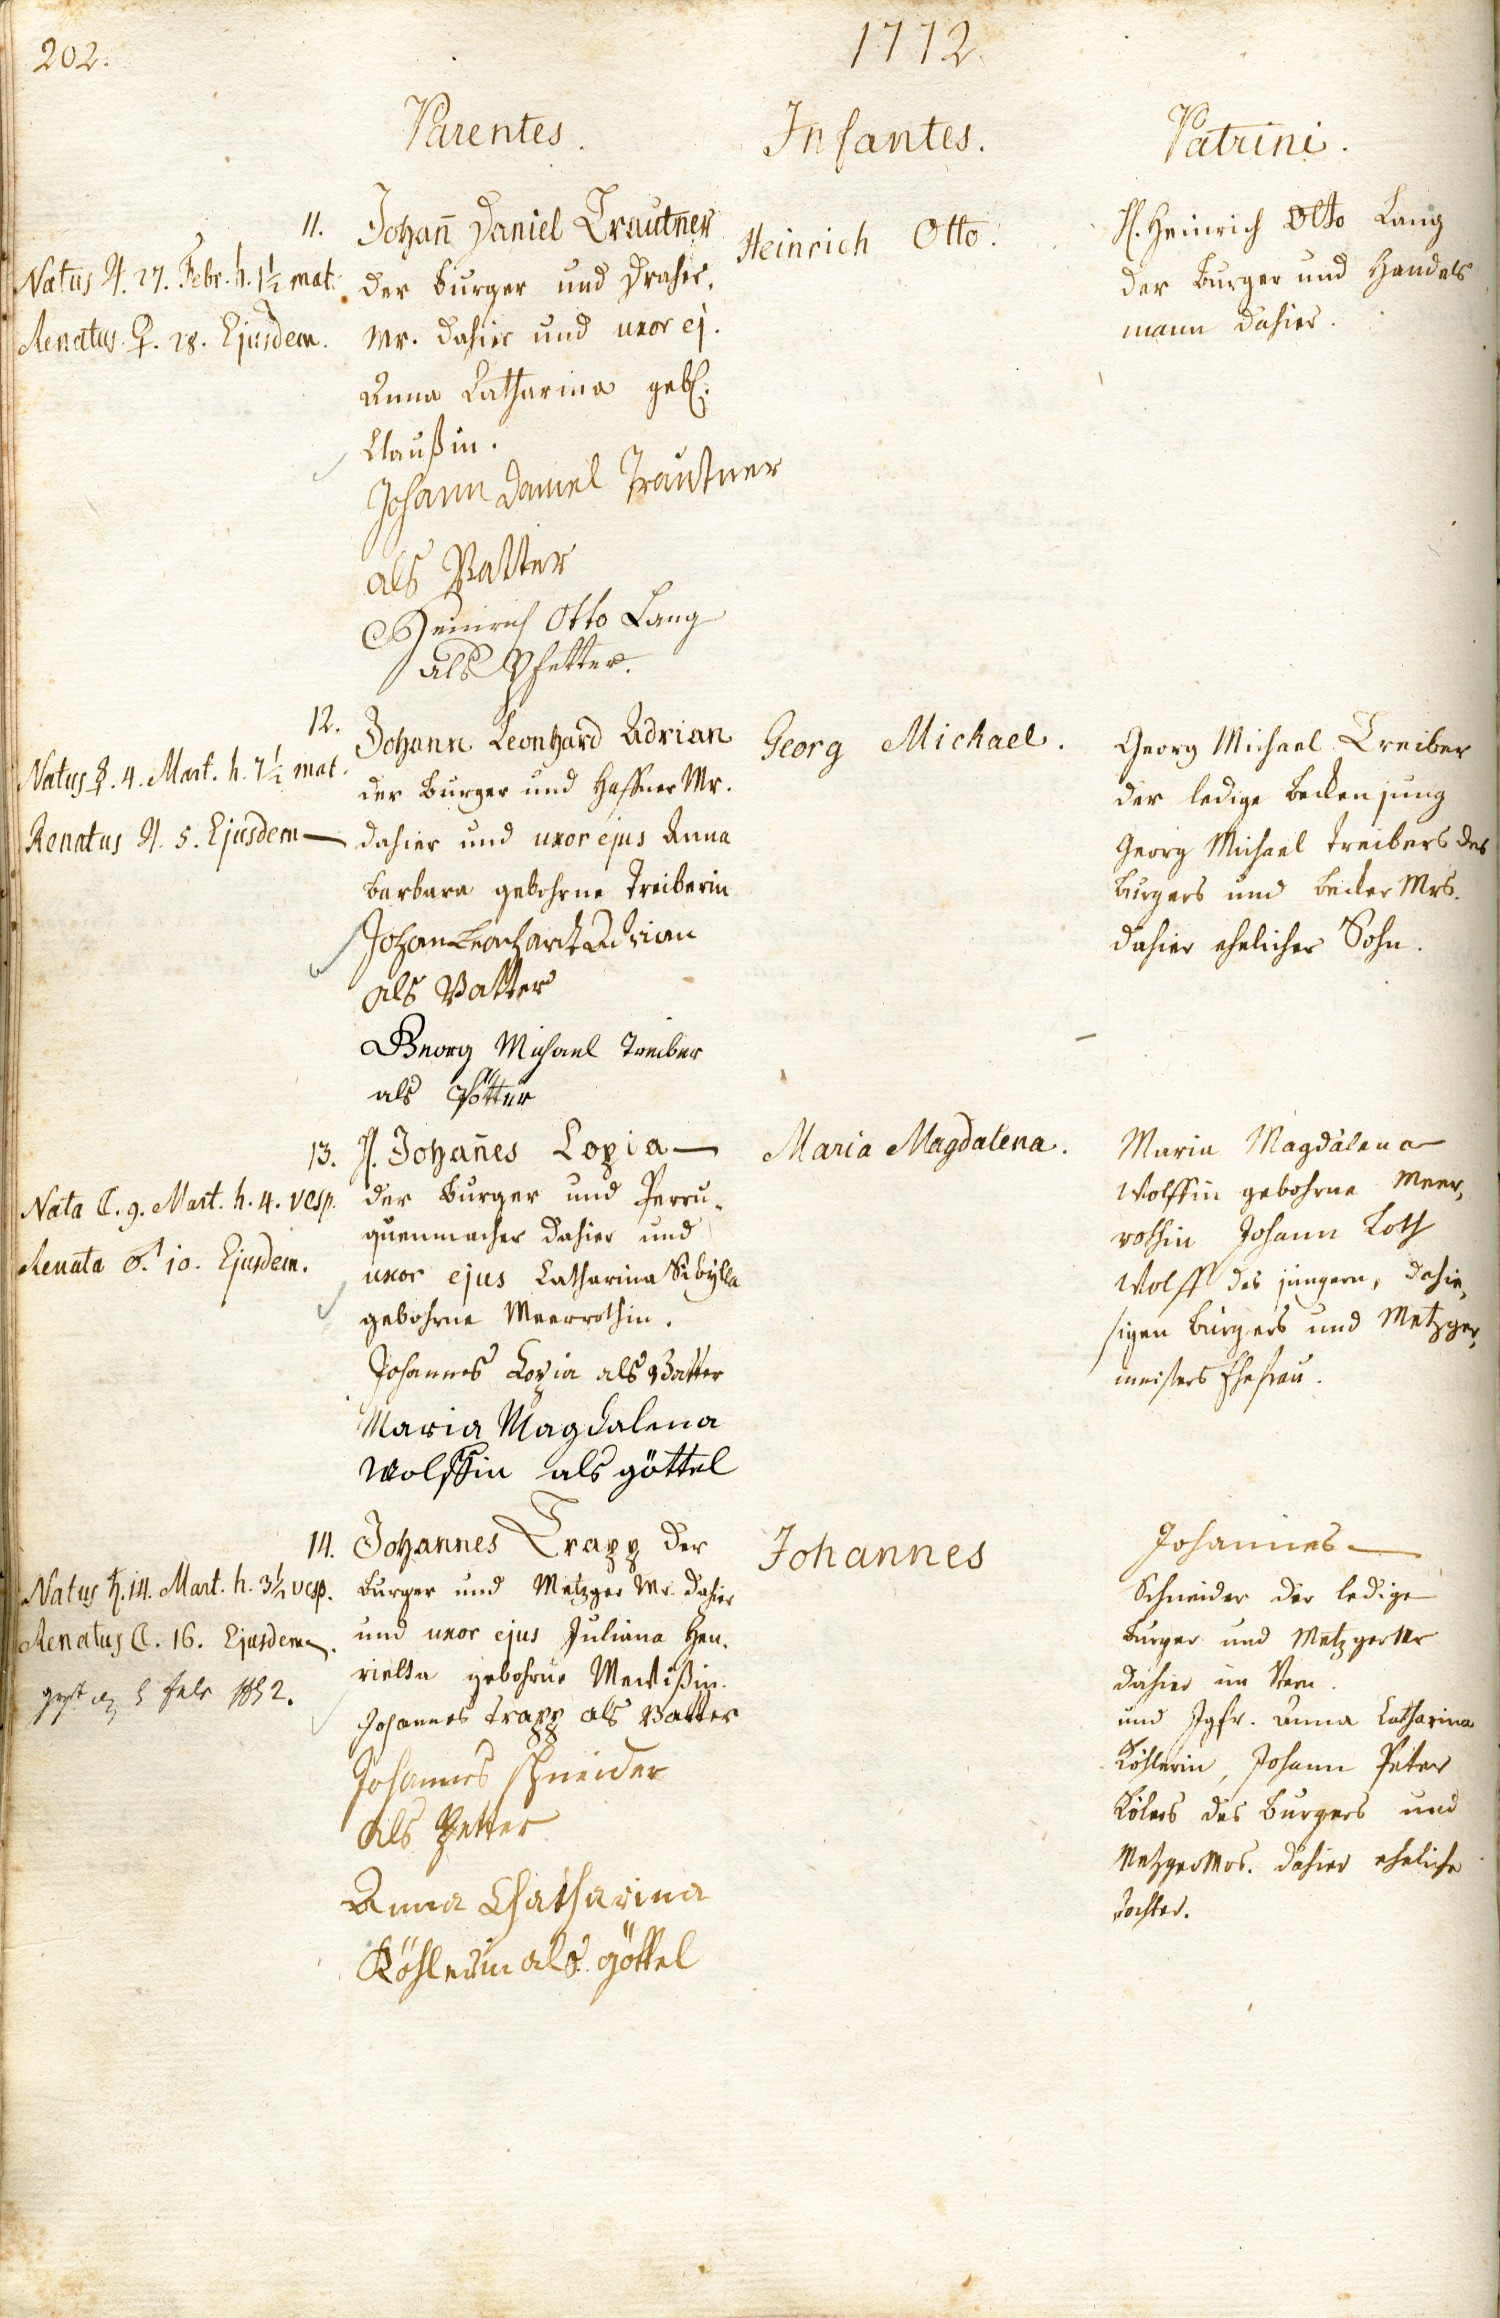 202.
1772.
Parentes.
Infantes.
Patrini.
11.
Natus ♃. 27. Febr. h. 1½ mat.
Renatus ♀. 28. Ejusdem.
Johan̄ Daniel Trautn̄er
der Burger und Dreher-
Mr. dahier und uxor ej.
Anna Catharina geb.
Claußin.
Johann Daniel Trautner
als Vatter
Heinrich Otto Lang
als Pfetter.
Heinrich Otto.
H. Heinrich Otto Lang
der Burger und Handels
mann dahier.
12.
Natus ☿. 4. Mart. h. 7½ mat.
Renatus ♃. 5. Ejusdem
Johann Leonhard Adrian
der Burger und Haffner Mr.
dahier und uxor ejus Anna
Barbara gebohrne Treiberin
Johan Leonhardt Adrian
als Vatter
Georg Michael Treiber
als Pfötter
Georg Michael.
Georg Michael Treiber
der ledige Beckenjung
Georg Michael Treibers des
Burgers und Becker Mrs.
dahier ehelicher Sohn.
13.
Nata ☾. 9. Mart. h. 4. vesp.
Renata ♂. 10. Ejusdem.
H. Johan̄es Lopia
der Burger und Perru-
quenmacher dahier und
uxor ejus Catharina Sibylla
gebohrne Meerrothin.
Johannes Lopia als Vatter
Maria Magdalena
Wolffin als göttel
Maria Magdalena.
Maria Magdalena
Wolffin gebohrne Meer-
rothin Johann Loth
Wolff des jüngern, dahie-
sigen Burgers und Metzger-
meisters Ehefrau.
14.
Natus ♄. 14. Mart. h. 3½ vesp.
Renatus ☾. 16. Ejusdem.
1852.
Johannes Trapp der
Burger und Metzger Mr. dahier
und uxor ejus Juliana Hen-
rietta gebohrne
Johannes Trapp als Vatter
Johannes Schneider
als Petter
Anna Chatharina
Köhlerin als göttel
Johannes
Johannes
Schneider der ledige
Burger und Metzger Mr
dahier
und Jgfr. Anna Catharina
Köhlerin, Johann Peter
Kölers des Burgers und
Metzger Mrs. dahier eheliche
Tochter.